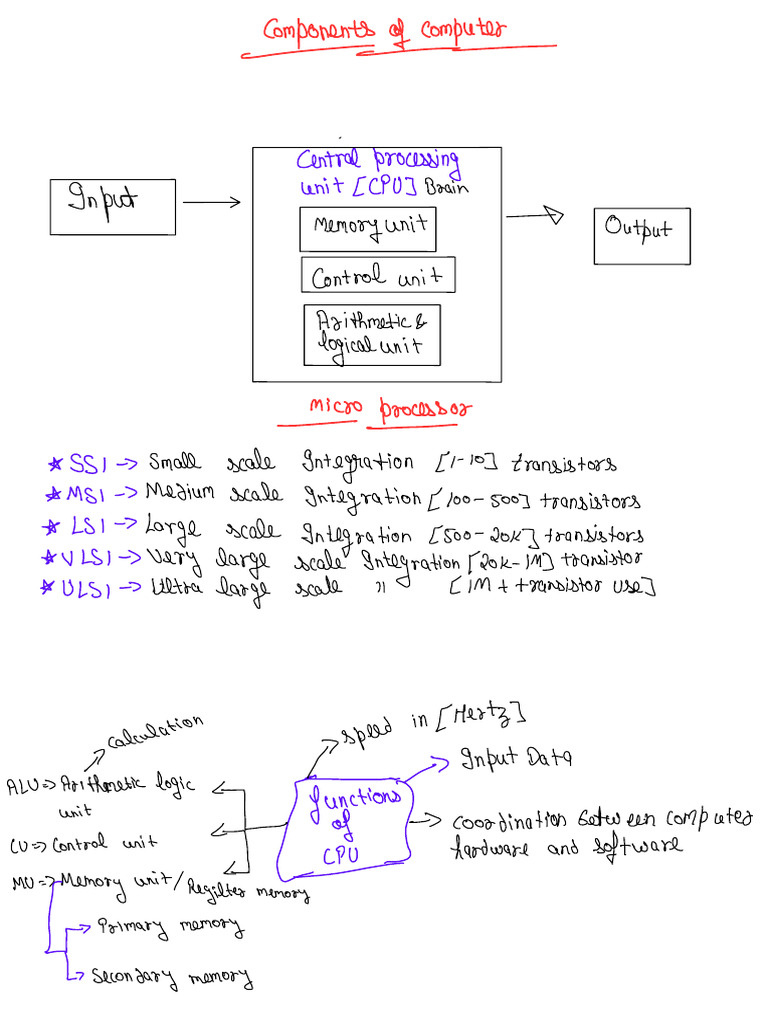 Components of Computer
Central processing
unit [CPU] Brain
Input
Memory unit
Output
Control unit
Arithmetic &
logical unit
Micro processor
* SSI -> Small scale Integration [1-10] transistors
* MSI -> Medium scale Integration [100-500] transistors
* LSI -> Large scale Integration [500-20K] transistors
* VLSI -> Very large scale Integration [20K-1M] transistor
* ULSI -> Ultra large scale " [1M+ transistor use]
calculation
speed in [Hertz]
Input Data
ALU => Arithmetic logic
unit
functions
of
CPU
coordination between computer
hardware and software
CU => Control unit
MU => Memory unit / Register memory
Primary memory
Secondary memory